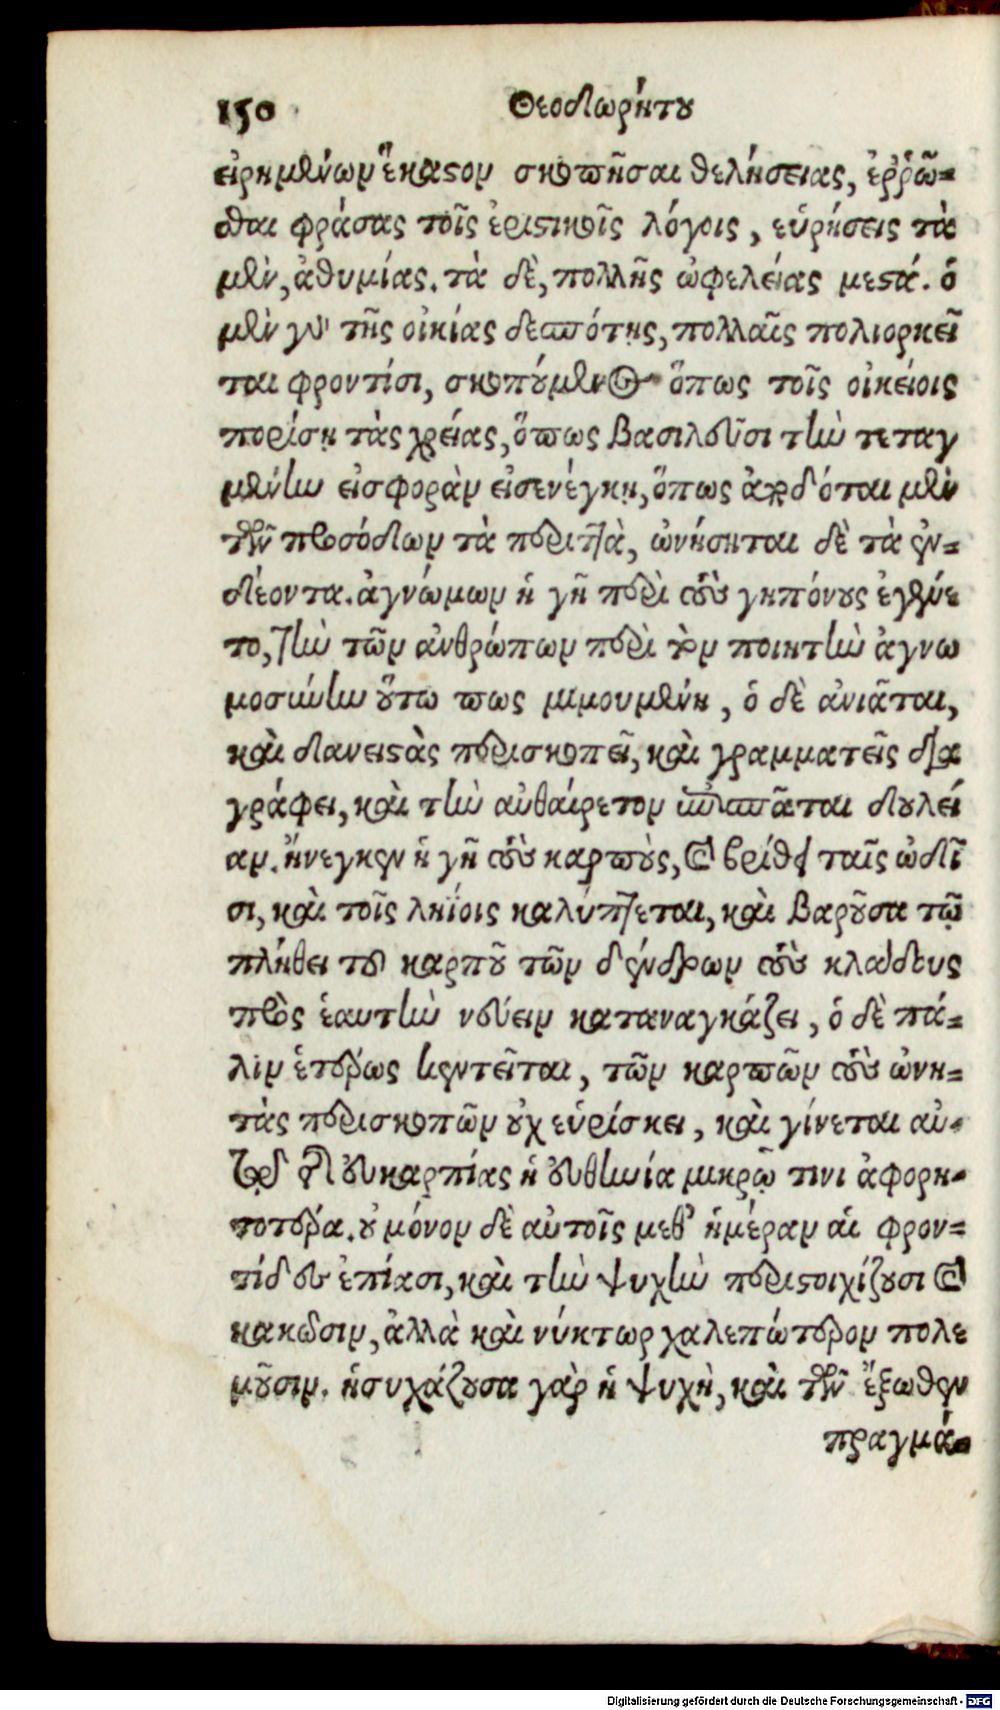 150 Θεοδωρήτου
εἰρημένων ἕκαστον σκοπῆσαι θελήσειας, ἐῤῥῶ-
σθαι φράσας τοῖς ἐριστικοῖς λόγοις, εὑρήσεις τὰ
μὲν, ἀθυμίας. τὰ δὲ, πολλῆς ὠφελείας μεστά. ὁ
μὲν γὰρ τῆς οἰκίας δεσπότης, πολλαῖς πολιορκεῖ
ται φροντίσι, σκοπούμενος ὅπως τοῖς οἰκείοις
πορίσῃ τὰς χρείας, ὅπως βασιλεῦσι τὴν τεταγ
μένην εἰσφορὰν εἰσενέγκῃ, ὅπως ἀποδόται μὲν
τῶν προσόδων τὰ περιττὰ, ὠνήσηται δὲ τὰ ἐν-
δέοντα. ἀγνώμων ἡ γῆ περὶ τοὺς γηπόνους ἐγένε
το, τὴν τῶν ἀνθρώπων περὶ τὸν ποιητὴν ἀγνω
μοσύνην οὕτω πως μιμουμένη, ὁ δὲ ἀνιᾶται,
καὶ δανειστὰς περισκοπεῖ, καὶ γραμματεῖς δια
γράφει, καὶ τὴν αὐθαίρετον ἀσπᾶται δουλεί
αν. ἤνεγκεν ἡ γῆ τοὺς καρποὺς, καὶ βρίθει ταῖς ὠδῖ
σι, καὶ τοῖς ληΐοις καλύπτεται, καὶ βαροῦσα τῷ
πλήθει τοῦ καρποῦ τῶν δένδρων τοὺς κλάδους
πρὸς ἑαυτὴν νεύειν καταναγκάζει, ὁ δὲ πά-
λιν ἑτέρως κεντεῖται, τῶν καρπῶν τοὺς ὠνη-
τὰς περισκοπῶν οὐχ εὑρίσκει, καὶ γίνεται αὐ-
τῷ τῆς εὐκαρπίας ἡ εὐθηνία μικρῷ τινι ἀφορη-
τοτέρα. οὐ μόνον δὲ αὐτοῖς μεθ' ἡμέραν αἱ φρον-
τίδες ἐπίασι, καὶ τὴν ψυχὴν περιστοιχίζουσι καὶ
κακῶσιν, ἀλλὰ καὶ νύκτωρ χαλεπώτερον πολε
μοῦσιν. ἡσυχάζουσα γὰρ ἡ ψυχὴ, καὶ τῶν ἔξωθεν
πραγμά-
Digitalisierung gefördert durch die Deutsche Forschungsgemeinschaft - DFG